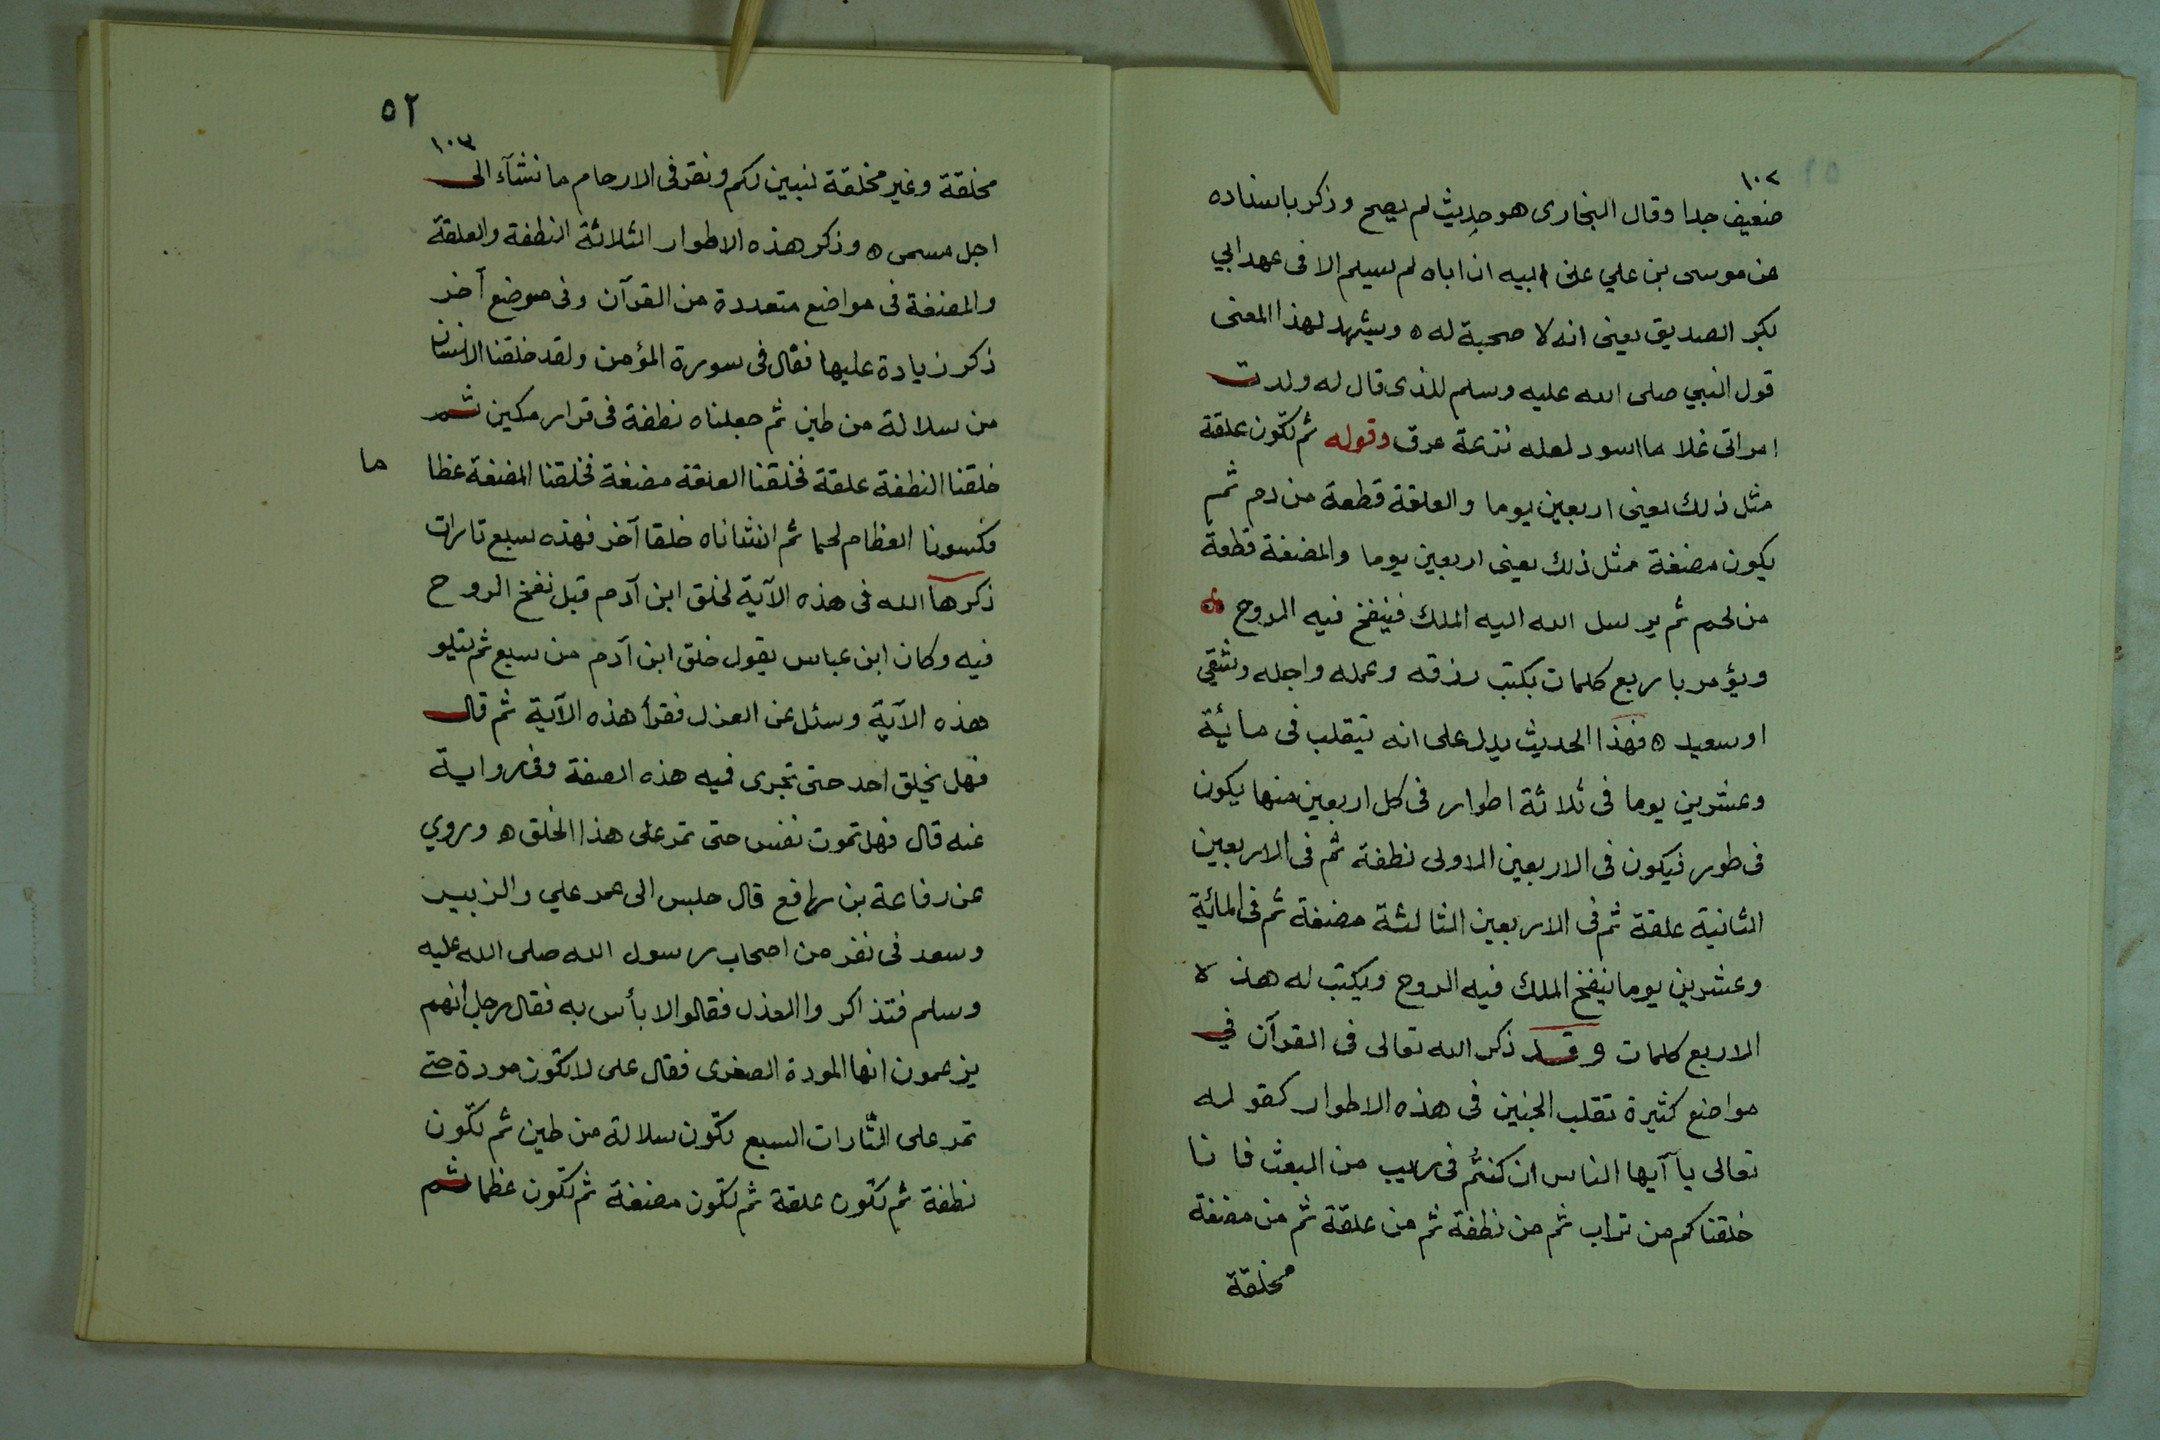 ١٠٢
ضعيف جدا وقال البخارى هو حديث لم يصح وذكر باسناده
عن موسى بن علي عن ابيه ان اباه لم يسلم الا فى عهد ابي
بكر الصديق يعنى انه لا صحبة له ه ويشهد لهذا المعنى
قول النبي صلى الله عليه وسلم للذى قال له ولدت
امراتى غلاما اسود لعله نزعة عرق وقوله ثم تكون علقة
مثل ذلك يعنى اربعين يوما والعلقة قطعة من دم ثم
يكون مضغة مثل ذلك يعنى اربعين يوما والمضغة قطعة
من لحم ثم يرسل الله اليه الملك فينفخ فيه الروح ه
ويؤمر باربع كلمات بكتب رزقه وعمله واجله وشقي
او سعيد ه فهذا الحديث يدل على انه يتقلب فى مائية
وعشرين يوما فى ثلاثة اطوار فى كل اربعين منها يكون
فى طور فيكون فى الاربعين الاولى نطفة ثم فى الاربعين
الثانية علقة ثم فى الاربعين الثالثة مضغة ثم فى المائية
وعشرين يوما ينفخ الملك فيه الروح ويكتب له هذه
الاربع كلمات وقد ذكر الله تعالى فى القرآن في
مواضع كثيرة تقلب الجنين فى هذه الاطوار كقوله
تعالى يا آيها الناس ان كنتم فى ريب من البعث فانا
خلقناكم من تراب ثم من نطفة ثم من علقة ثم من مضغة
مخلقة
٥٢
١٠٣
مخلقة وغير مخلقة لنبين لكم ونقر فى الارحام ما نشآء الى
اجل مسمى ه وذكر هذه الاطوار الثلاثة النطفة والعلقة
والمضغة فى مواضع متعددة من القرآن وفى موضع آخر
ذكر زيادة عليها فقال فى سورة المؤمن ولقد خلقنا الانسان
من سلالة من طين ثم جعلناه نطفة فى قرار مكين ثم
خلقنا النطفة علقة فخلقنا العلقة مضغة فخلقنا المضغة عظا ما
فكسونا العظام لحما ثم انشاناه خلقا آخر فهذه سبع تارات
ذكرها الله فى هذه الآية لخلق ابن آدم قبل نفخ الروح
فيه وكان ابن عباس يقول خلق ابن آدم من سبع ثم يتلو
هذه الآية وسئل عن العزل فقرأ هذه الآية ثم قال
فهل يخلق احد حتى تجرى فيه هذه الصفة وفى رواية
عنه قال فهل تموت نفس حتى تمر على هذا الخلق ه وروي
عن رفاعة بن رافع قال جلس الى عمر علي والزبير
وسعد فى نفر من اصحاب رسول الله صلى الله عليه
وسلم فتذاكروا العزل فقالوا لا بأس به فقال رجل انهم
يزعمون انها المودة الصغرى فقال على لا تكون مودة حتى
تمر على التارات السبع تكون سلالة من طين ثم تكون
نطفة ثم تكون علقة ثم تكون مضغة ثم تكون عظما ثم